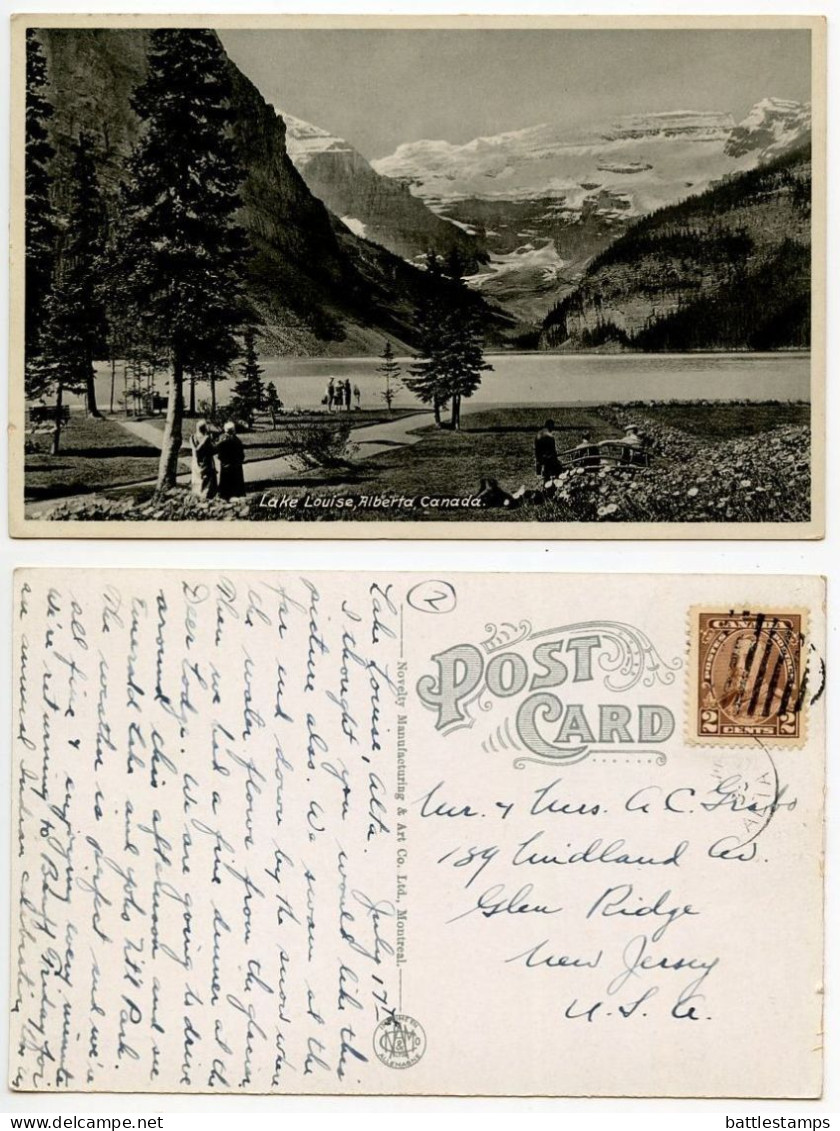 Lake Louise, Alberta, Canada.
Lake Louise, Alta. July 17th
I thought you would like this
picture also. We swam at the
far end down by the snow where
the water flows from the glacier.
Then we had a fine dinner at the
Deer Lodge. We are going to drive
around this afternoon and see
Emerald Lake and Yoho Nat'l Park.
The weather is perfect and we're
all fine & enjoying every minute
We're returning to Banff Friday for
an annual Indian celebration
Novelty Manufacturing & Art Co. Ltd., Montreal.
2
POST
CARD
CANADA
POSTES POSTAGE
2 2
CENTS
ALTA
Mr. & Mrs. A C. Grabo
189 Midland Av.
Glen Ridge
New Jersey
U.S.A.
ALLEMAGNE
delcampe.net
battlestamps